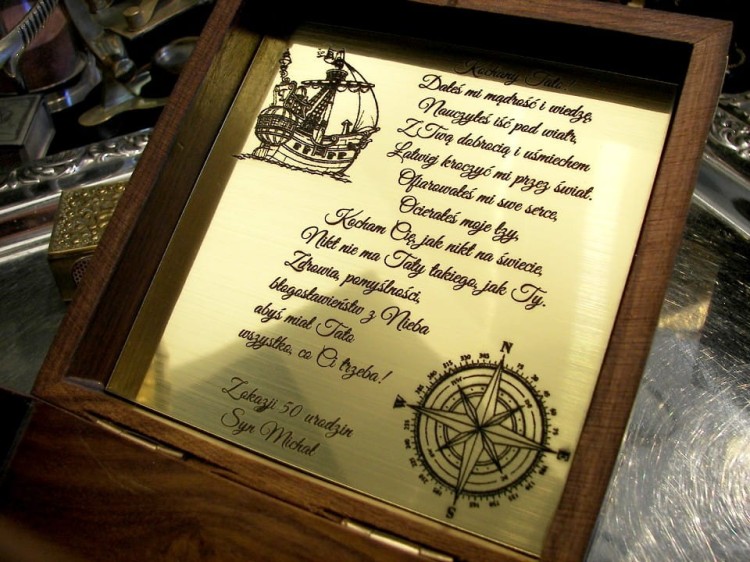 Kochany Tato
Dałeś mi mądrość i wiedzę,
Nauczyłeś iść pod wiatr,
Z Twą dobrocią i uśmiechem
Łatwiej kroczyć mi przez świat.
Ofiarowałeś mi swe serce,
Ocierałeś moje łzy,
Kocham Cię, jak nikt na świecie,
Nikt nie ma Taty takiego, jak Ty.
Zdrowia, pomyślności,
błogosławieństw z Nieba
abyś miał Tato
wszystko, co Ci trzeba!
Z okazji 50 urodzin
Syn Michał
N
W
E
S